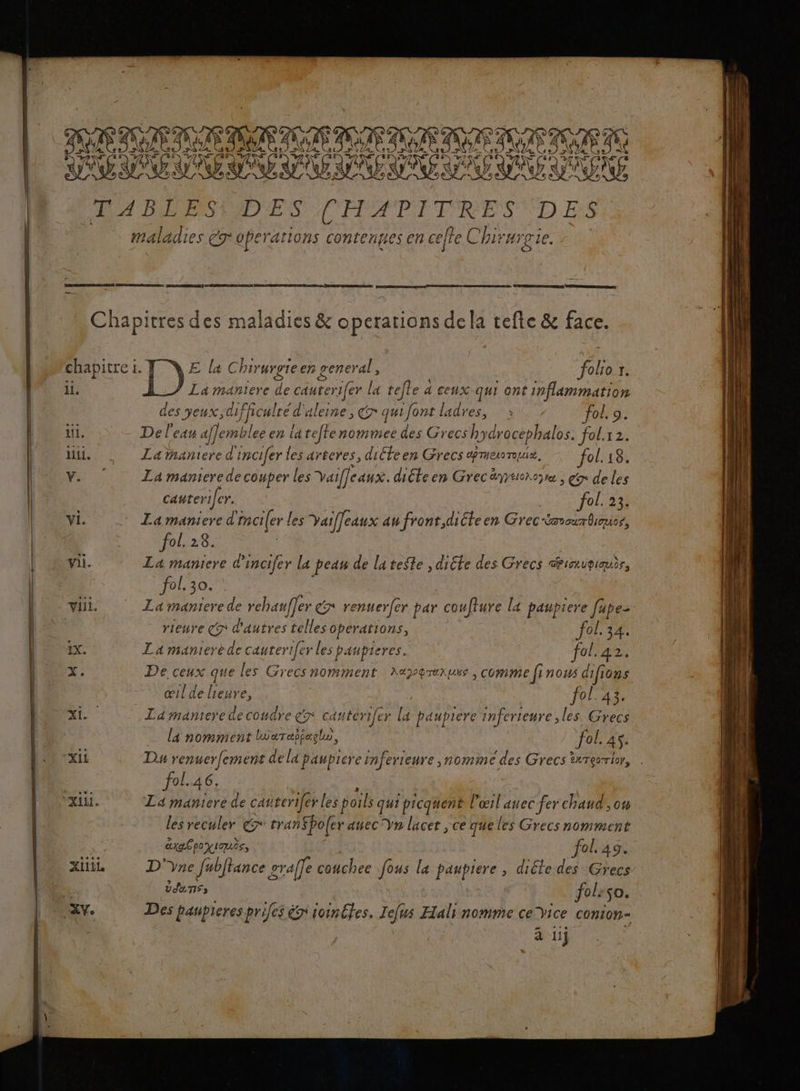 TABLES DES CHAPITRES DES
maladies & operations contenues en ceste Chirurgie.
Chapitres des maladies & operations de la teste & face.
chapitre i. DE la Chirurgie en general, folio 1.
ii. La maniere de cauteriser la teste à ceux qui ont inflammation
des yeux, difficulté d'aleine, & qui sont ladres, fol. 9.
iii. De l'eau assemblee en la teste nommee des Grecs hydrocephalos. fol. 12.
iiii. La maniere d'inciser les arteres, dicte en Grecs fol. 18.
v. La maniere de couper les vaisseaux. dicte en Grec & de les
cauteriser. fol. 23.
vi. La maniere d'inciser les vaisseaux au front, dicte en Grec
fol. 28.
vii. La maniere d'inciser la peau de la teste, dicte des Grecs
fol. 30.
viii. La maniere de rehausser & renuerser par cousture la paupiere supe-
rieure & d'autres telles operations, fol. 34.
ix. La maniere de cauteriser les paupieres. fol. 42.
x. De ceux que les Grecs nomment , comme si nous disions
œil de lieure, fol. 43.
xi. La maniere de coudre & cauteriser la paupiere inferieure, les Grecs
la nomment fol. 45.
xii Du renuersement de la paupiere inferieure, nommé des Grecs
fol. 46.
xiii. La maniere de cauteriser les poils qui picquent l'œil auec fer chaud, ou
les reculer & transposer auec vn lacet, ce que les Grecs nomment
fol. 49.
xiiii. D'vne substance grasse couchee sous la paupiere, dicte des Grecs
fol. 50.
xv. Des paupieres prises & ioinctes. Iesus Hali nomme ce vice conion-
à iij